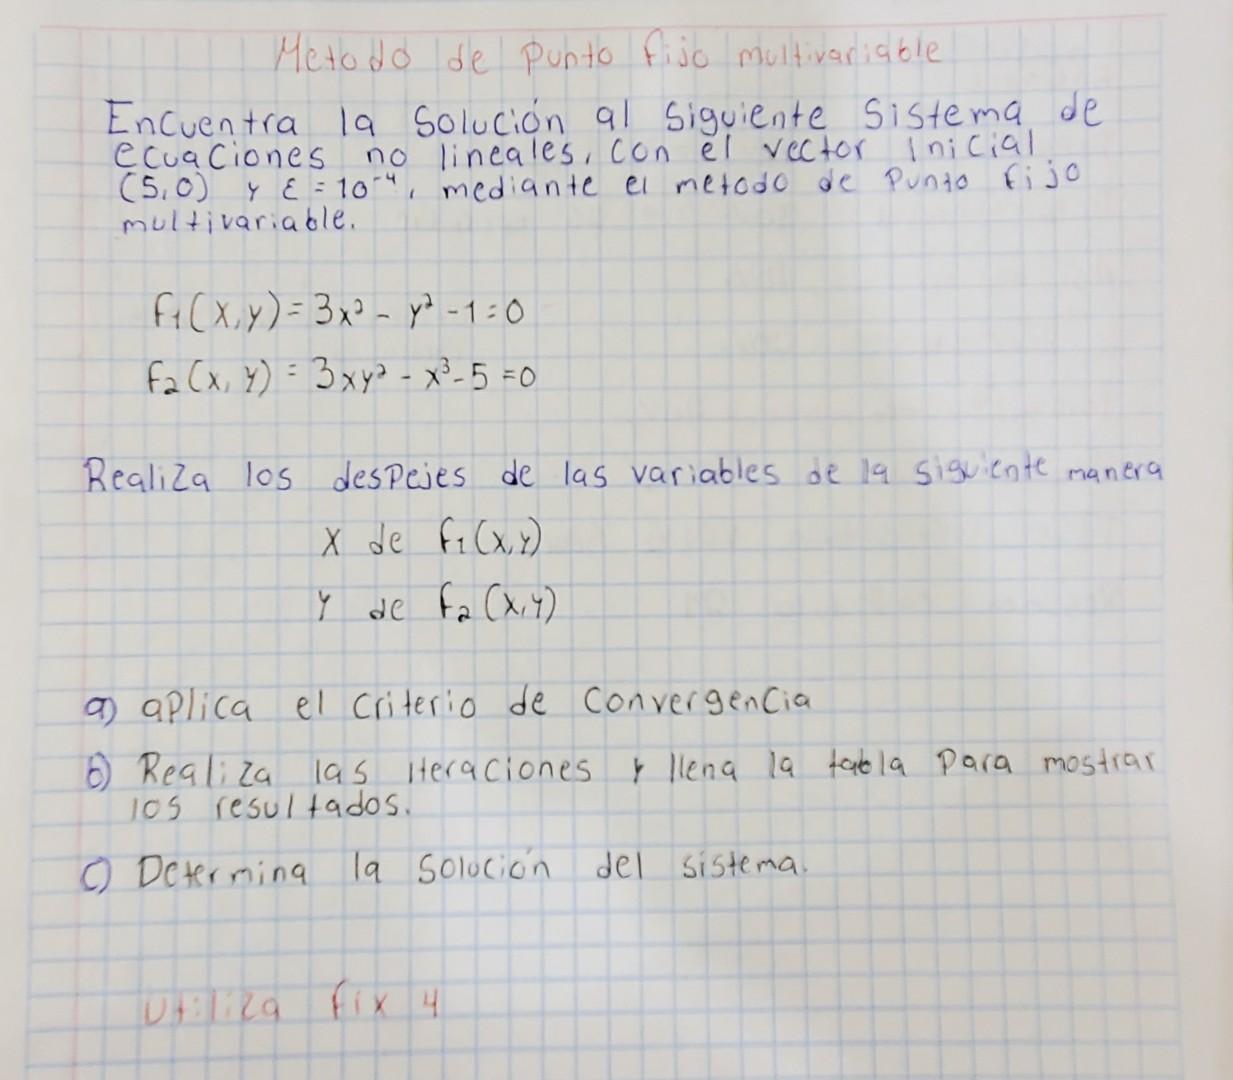 Metodo de Punto fijo multivariable
Encuentra la Solución al Siguiente Sistema de
ecuaciones no lineales, con el vector inicial
(5,0) y ε = 10⁻⁴, mediante el metodo de Punto fijo
multivariable.
f₁(x,y) = 3x² - y² - 1 = 0
f₂(x, y) = 3xy² - x³ - 5 = 0
Realiza los despejes de las variables de la siguiente manera
X de f₁(x,y)
Y de f₂(x,y)
a) aplica el criterio de convergencia
b) Realiza las iteraciones y llena la tabla Para mostrar
los resultados.
c) Determina la Solución del sistema.
Utiliza fix 4